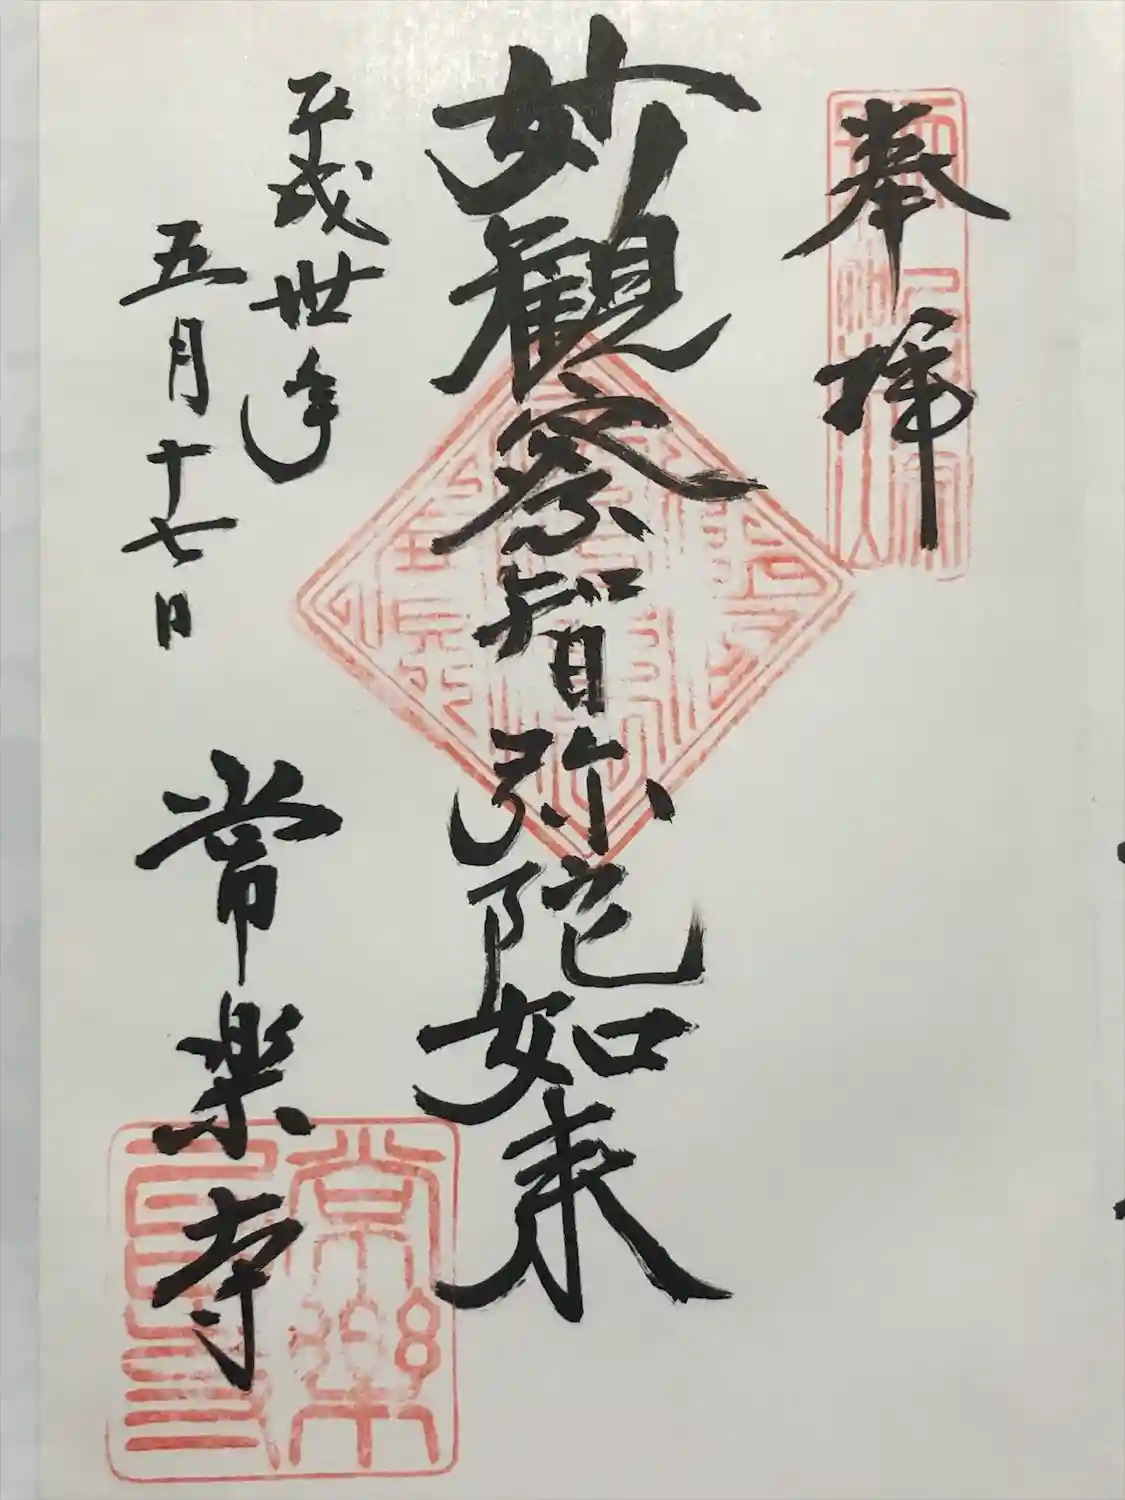 奉拝
妙觀察智弥陀如来
平成丗年
五月十七日
常楽寺